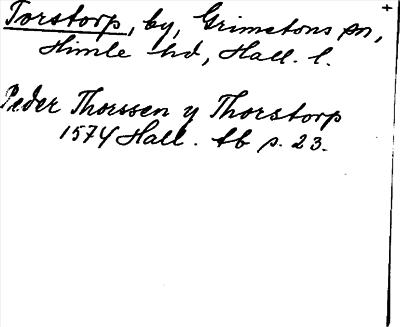 Torstorp, by, Grimetons sn,
Himle hd, Hall. l.
Peder Thorssen y Thorstorp
1574 Hall. tb s. 23.